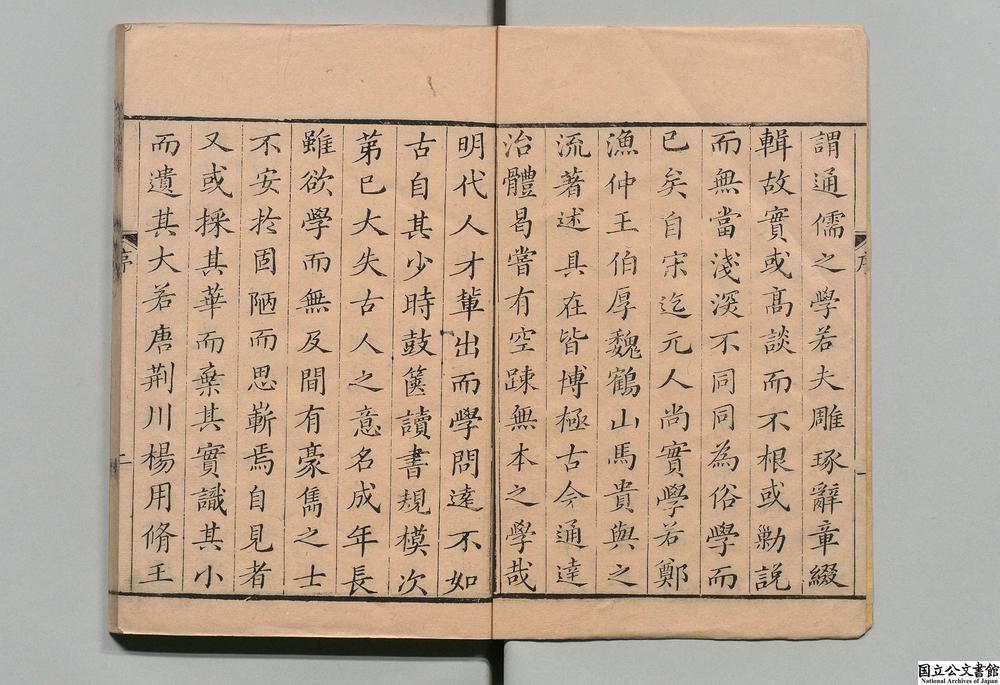 謂通儒之學若夫雕琢辭章綴
輯故實或高談而不根或勦說
而無當淺深不同同為俗學而
已矣自宋迄元人尚實學若鄭
漁仲王伯厚魏鶴山馬貴與之
流著述具在皆博極古今通達
治體曷嘗有空踈無本之學哉
明代人才輩出而學問遠不如
古自其少時鼓篋讀書規模次
苐已大失古人之意名成年長
雖欲學而無及間有豪雋之士
不安於固陋而思嶄焉自見者
又或採其華而棄其實識其小
而遺其大若唐荊川楊用脩王
序
二
国立公文書館
National Archives of Japan